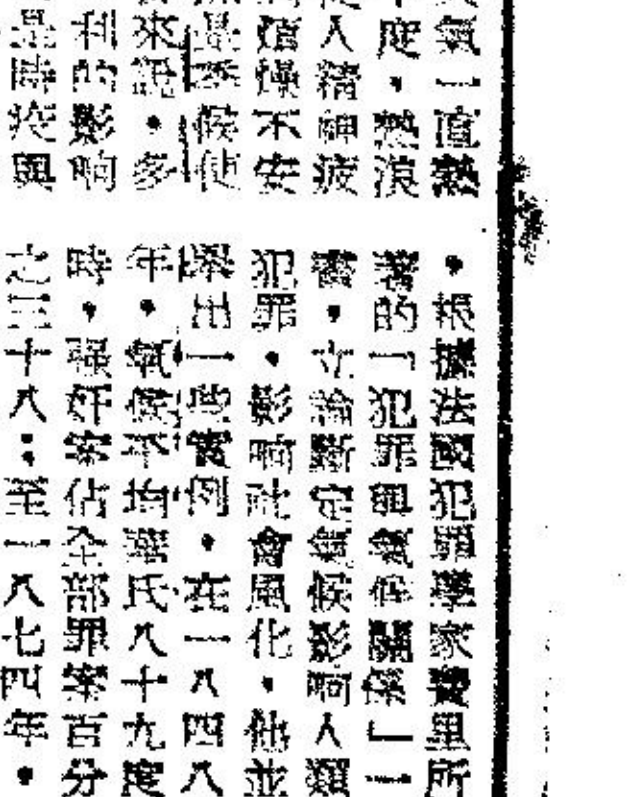 氣一直熱
度，熱浪
人精神疲
煩燥不安
是氣候使
來說，多
利的影响
是時疫與
，根據法國犯罪學家費里所
著的「犯罪與氣候關係」一
書，立論斷定氣候影响人類
犯罪，影响社會風化，他並
舉出一些實例，在一八四八
年，氣候平均華氏八十九度
時，强奸案佔全部罪案百分
之三十八：至一八七四年，